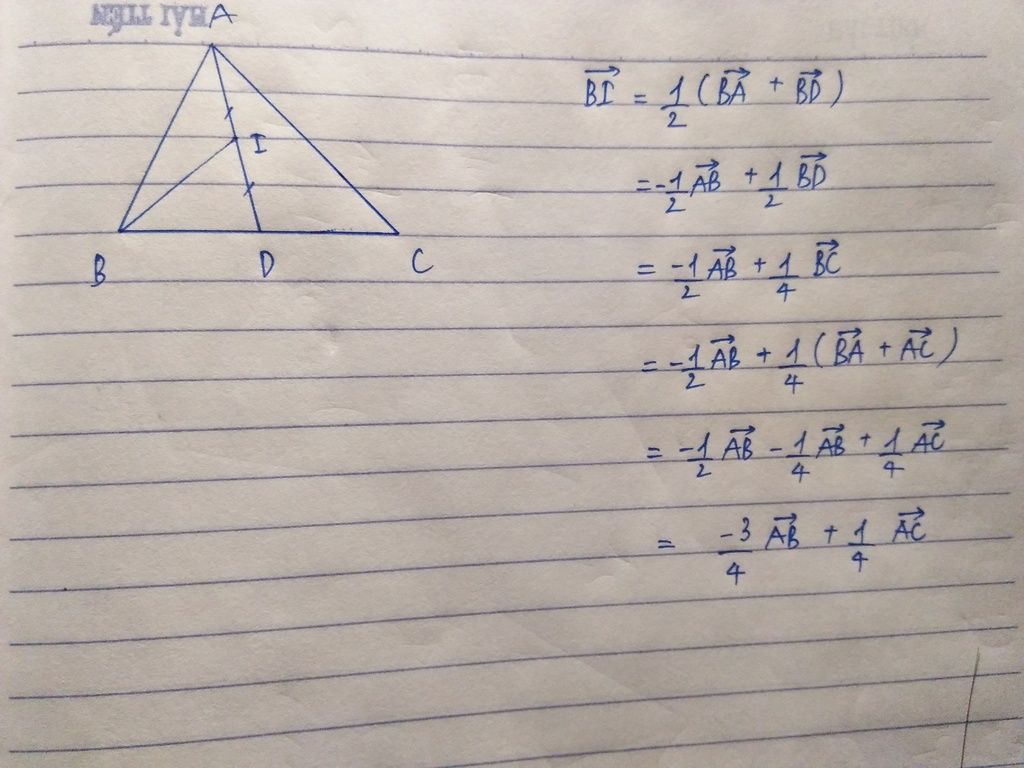 HẢI TIẾN
A
I
B D C
$\overrightarrow{BI} = \frac{1}{2}(\overrightarrow{BA} + \overrightarrow{BD})$
$= -\frac{1}{2}\overrightarrow{AB} + \frac{1}{2}\overrightarrow{BD}$
$= \frac{-1}{2}\overrightarrow{AB} + \frac{1}{4}\overrightarrow{BC}$
$= -\frac{1}{2}\overrightarrow{AB} + \frac{1}{4}(\overrightarrow{BA} + \overrightarrow{AC})$
$= -\frac{1}{2}\overrightarrow{AB} - \frac{1}{4}\overrightarrow{AB} + \frac{1}{4}\overrightarrow{AC}$
$= \frac{-3}{4}\overrightarrow{AB} + \frac{1}{4}\overrightarrow{AC}$